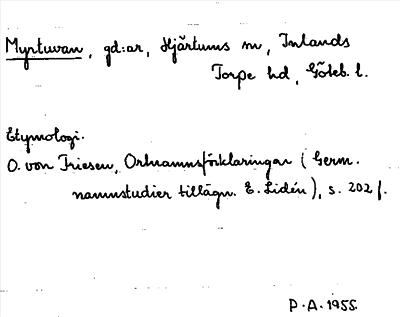 Myrtuvan, gd:ar, Hjärtums sn, Inlands
Torpe hd, Göteb. l.
Etymologi.
O. von Friesen, Ortnamnsförklaringar (Germ.
namnstudier tillägn. E. Lidén), s. 202 f.
P.A. 1955.